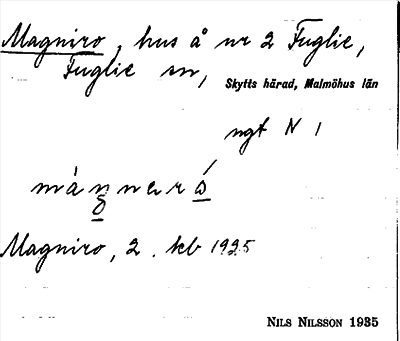 Magniro, hus å nr 2 Fuglie,
Fuglie sn,
Skytts härad, Malmöhus län
ngt N 1
Magniro, 2. kb 1925
NILS NILSSON 1935